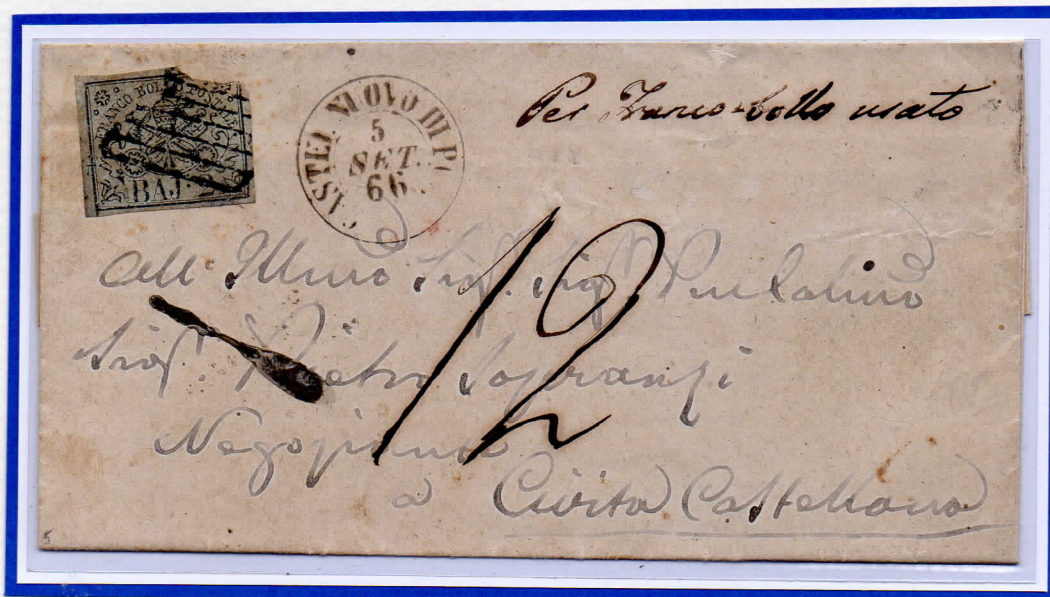 FRANCO BOLLO POSTALE
BAJ. 2
CASTEL NUOVO DI PO
5
SET.
66
Per Franco-bollo usato
12
All' Illmo Sig. Sig.
Sig. Pietro Sopranzi
Negoziante
a Civita Castellana
5